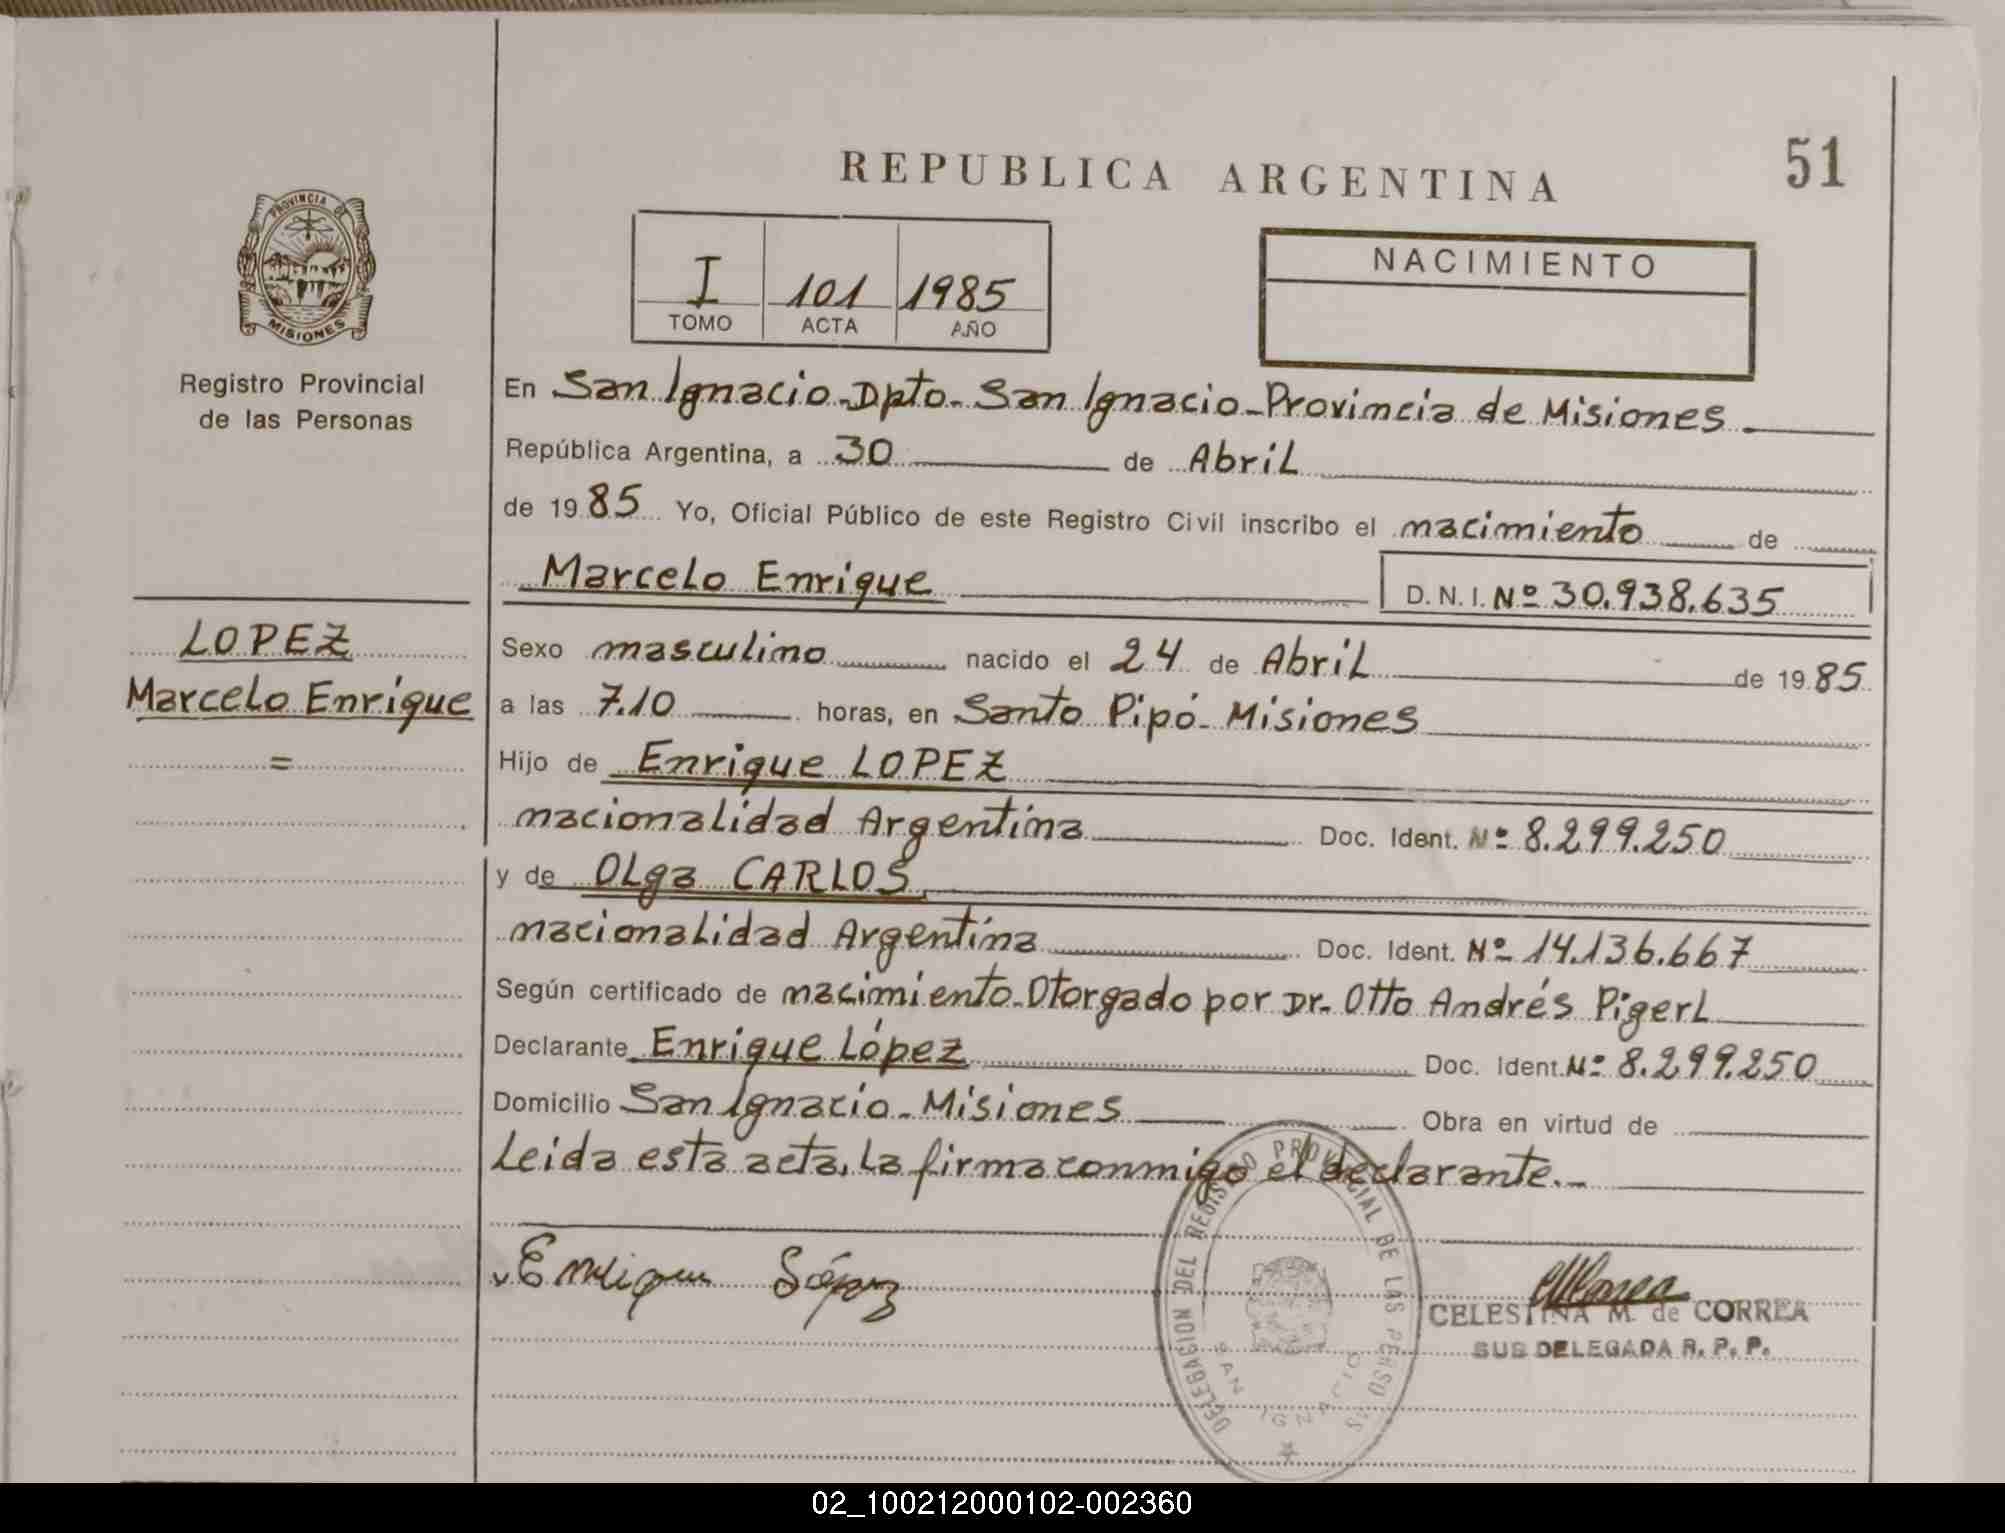 51
REPUBLICA ARGENTINA
PROVINCIA DE
MISIONES
Registro Provincial
de las Personas
I 101 1985
TOMO ACTA AÑO
NACIMIENTO
En San Ignacio-Dpto- San Ignacio-Provincia de Misiones
República Argentina, a 30 de Abril
de 1985 Yo, Oficial Público de este Registro Civil inscribo el nacimiento de
Marcelo Enrique D.N.I. Nº 30.938.635
LOPEZ
Marcelo Enrique
=
Sexo masculino nacido el 24 de Abril de 1985
a las 7.10 horas, en Santo Pipó- Misiones
Hijo de Enrique LOPEZ
nacionalidad Argentina Doc. Ident. Nº 8.299.250
y de Olga CARLOS
nacionalidad Argentina Doc. Ident. Nº 14.136.667
Según certificado de nacimiento-Otorgado por Dr. Otto Andrés Pigerl
Declarante Enrique López Doc. Ident. Nº 8.299.250
Domicilio San Ignacio- Misiones Obra en virtud de
Leida esta acta, la firma conmigo el declarante.-
Enrique López
CELESTINA M. de CORREA
SUB DELEGADA R. P. P.
DELEGACION DEL REGISTRO PROVINCIAL DE LAS PERSONAS
SAN IGNACIO
02_100212000102-002360